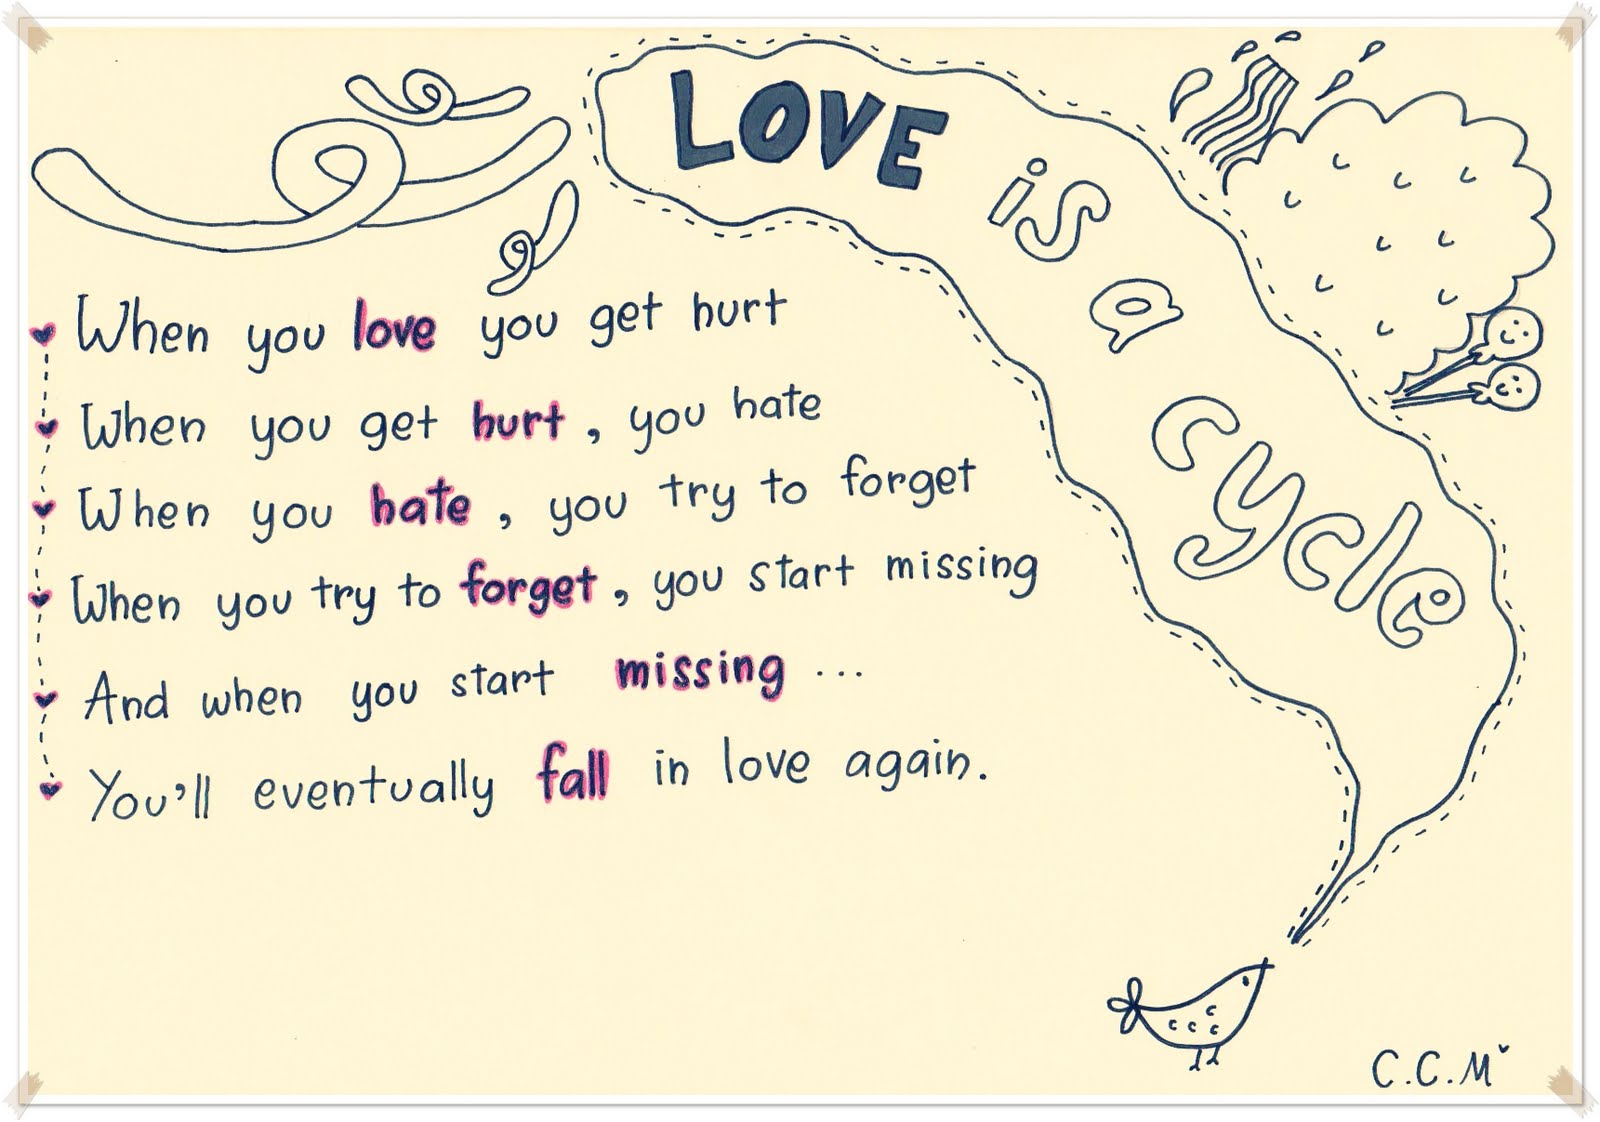 LOVE is a cycle
When you love you get hurt
When you get hurt, you hate
When you hate, you try to forget
When you try to forget, you start missing
And when you start missing ...
You'll eventually fall in love again.
C.C.M